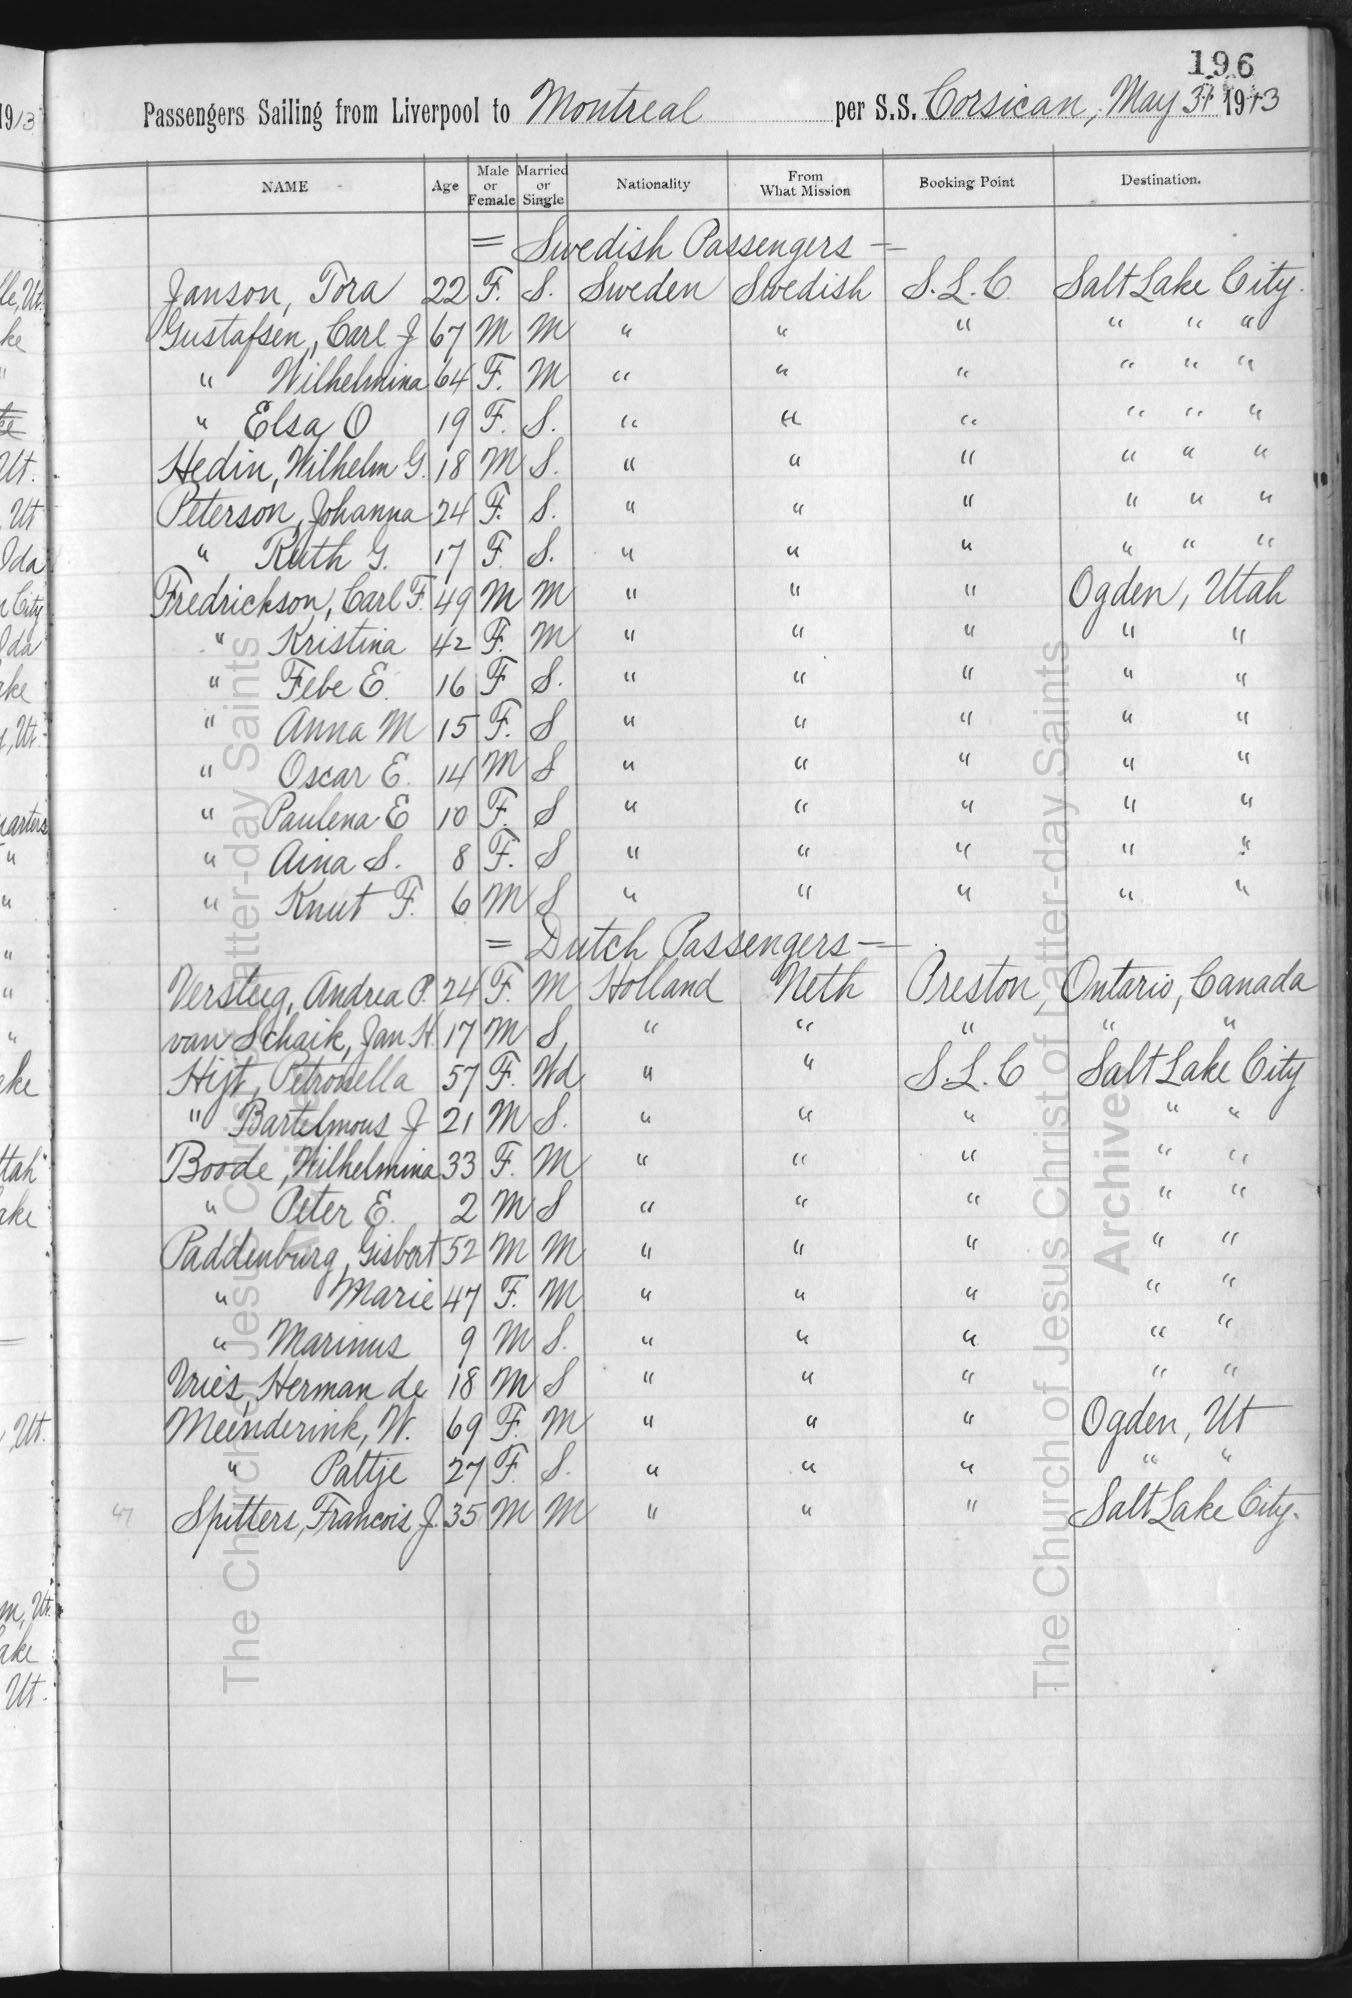 196
Passengers Sailing from Liverpool to Montreal per S.S. Corsican, May 31 1913
NAME Age Male or Female Married or Single Nationality From What Mission Booking Point Destination.
= Swedish Passengers —
Janson, Tora 22 F. S. Sweden Swedish S.L.C Salt Lake City.
Gustafsen, Carl J 67 M M " " " " " "
" Wilhelmina 64 F. M " " " " " "
" Elsa O 19 F. S. " " " " " "
Hedin, Wilhelm G. 18 M S. " " " " " "
Peterson, Johanna 24 F. S. " " " " " "
" Ruth G. 17 F S. " " " " " "
Fredrickson, Carl F. 49 M M " " " Ogden, Utah
" Kristina 42 F. M " " " " "
" Febe E. 16 F S. " " " " "
" Anna M 15 F. S " " " " "
" Oscar E. 14 M S " " " " "
" Paulena E 10 F. S " " " " "
" Aina S. 8 F. S " " " " "
" Knut F. 6 M S " " " " "
= Dutch Passengers —
Versteeg, Andrea P. 24 F. M Holland Neth Preston, Ontario, Canada
van Schaik, Jan H. 17 M S. " " " " "
Hijt, Petronella 57 F. Wd " " S.L.C Salt Lake City
" Bartelmous J 21 M S. " " " " "
Boode, Wilhelmina 33 F. M " " " " "
" Peter E. 2 M S " " " " "
Paddenburg, Gisbert 52 M M " " " " "
" Marie 47 F. M " " " " "
" Marinus 9 M S. " " " " "
Vries, Herman de 18 M S " " " " "
Meinderink, W. 69 F. M " " " Ogden, Ut
" Paltje 27 F. S. " " " " "
47 Spitters, Francois J. 35 M M " " " Salt Lake City.
The Church of Jesus Christ of Latter-day Saints
The Church of Jesus Christ of Latter-day Saints
Archives